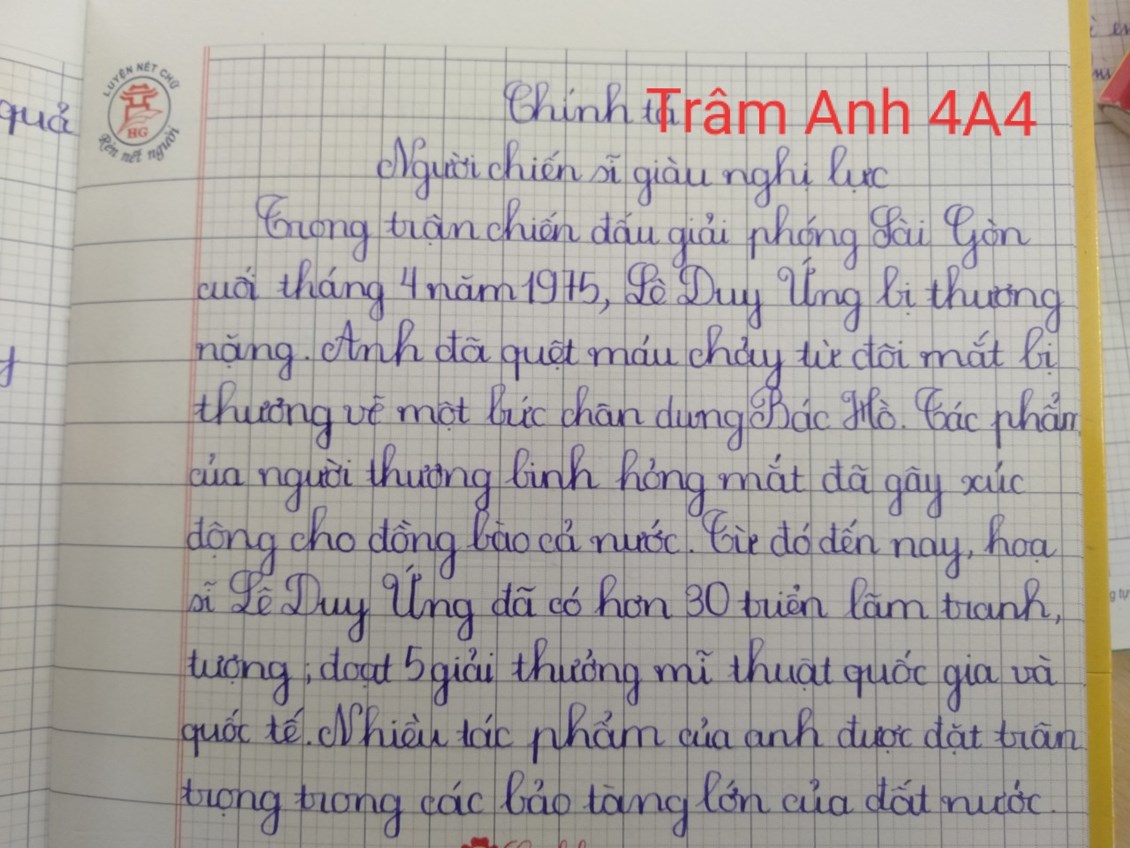 quả
LUYỆN NÉT CHỮ
HG
Rèn nết người
Chính tả
Trâm Anh 4A4
Người chiến sĩ giàu nghị lực
Trong trận chiến đấu giải phóng Sài Gòn
cuối tháng 4 năm 1975, Lê Duy Ứng bị thương
nặng. Anh đã quệt máu chảy từ đôi mắt bị
thương vẽ một bức chân dung Bác Hồ. Tác phẩm
của người thương binh hỏng mắt đã gây xúc
động cho đồng bào cả nước. Từ đó đến nay, hoạ
sĩ Lê Duy Ứng đã có hơn 30 triển lãm tranh,
tượng, đoạt 5 giải thưởng mĩ thuật quốc gia và
quốc tế. Nhiều tác phẩm của anh được đặt trân
trọng trong các bảo tàng lớn của đất nước.